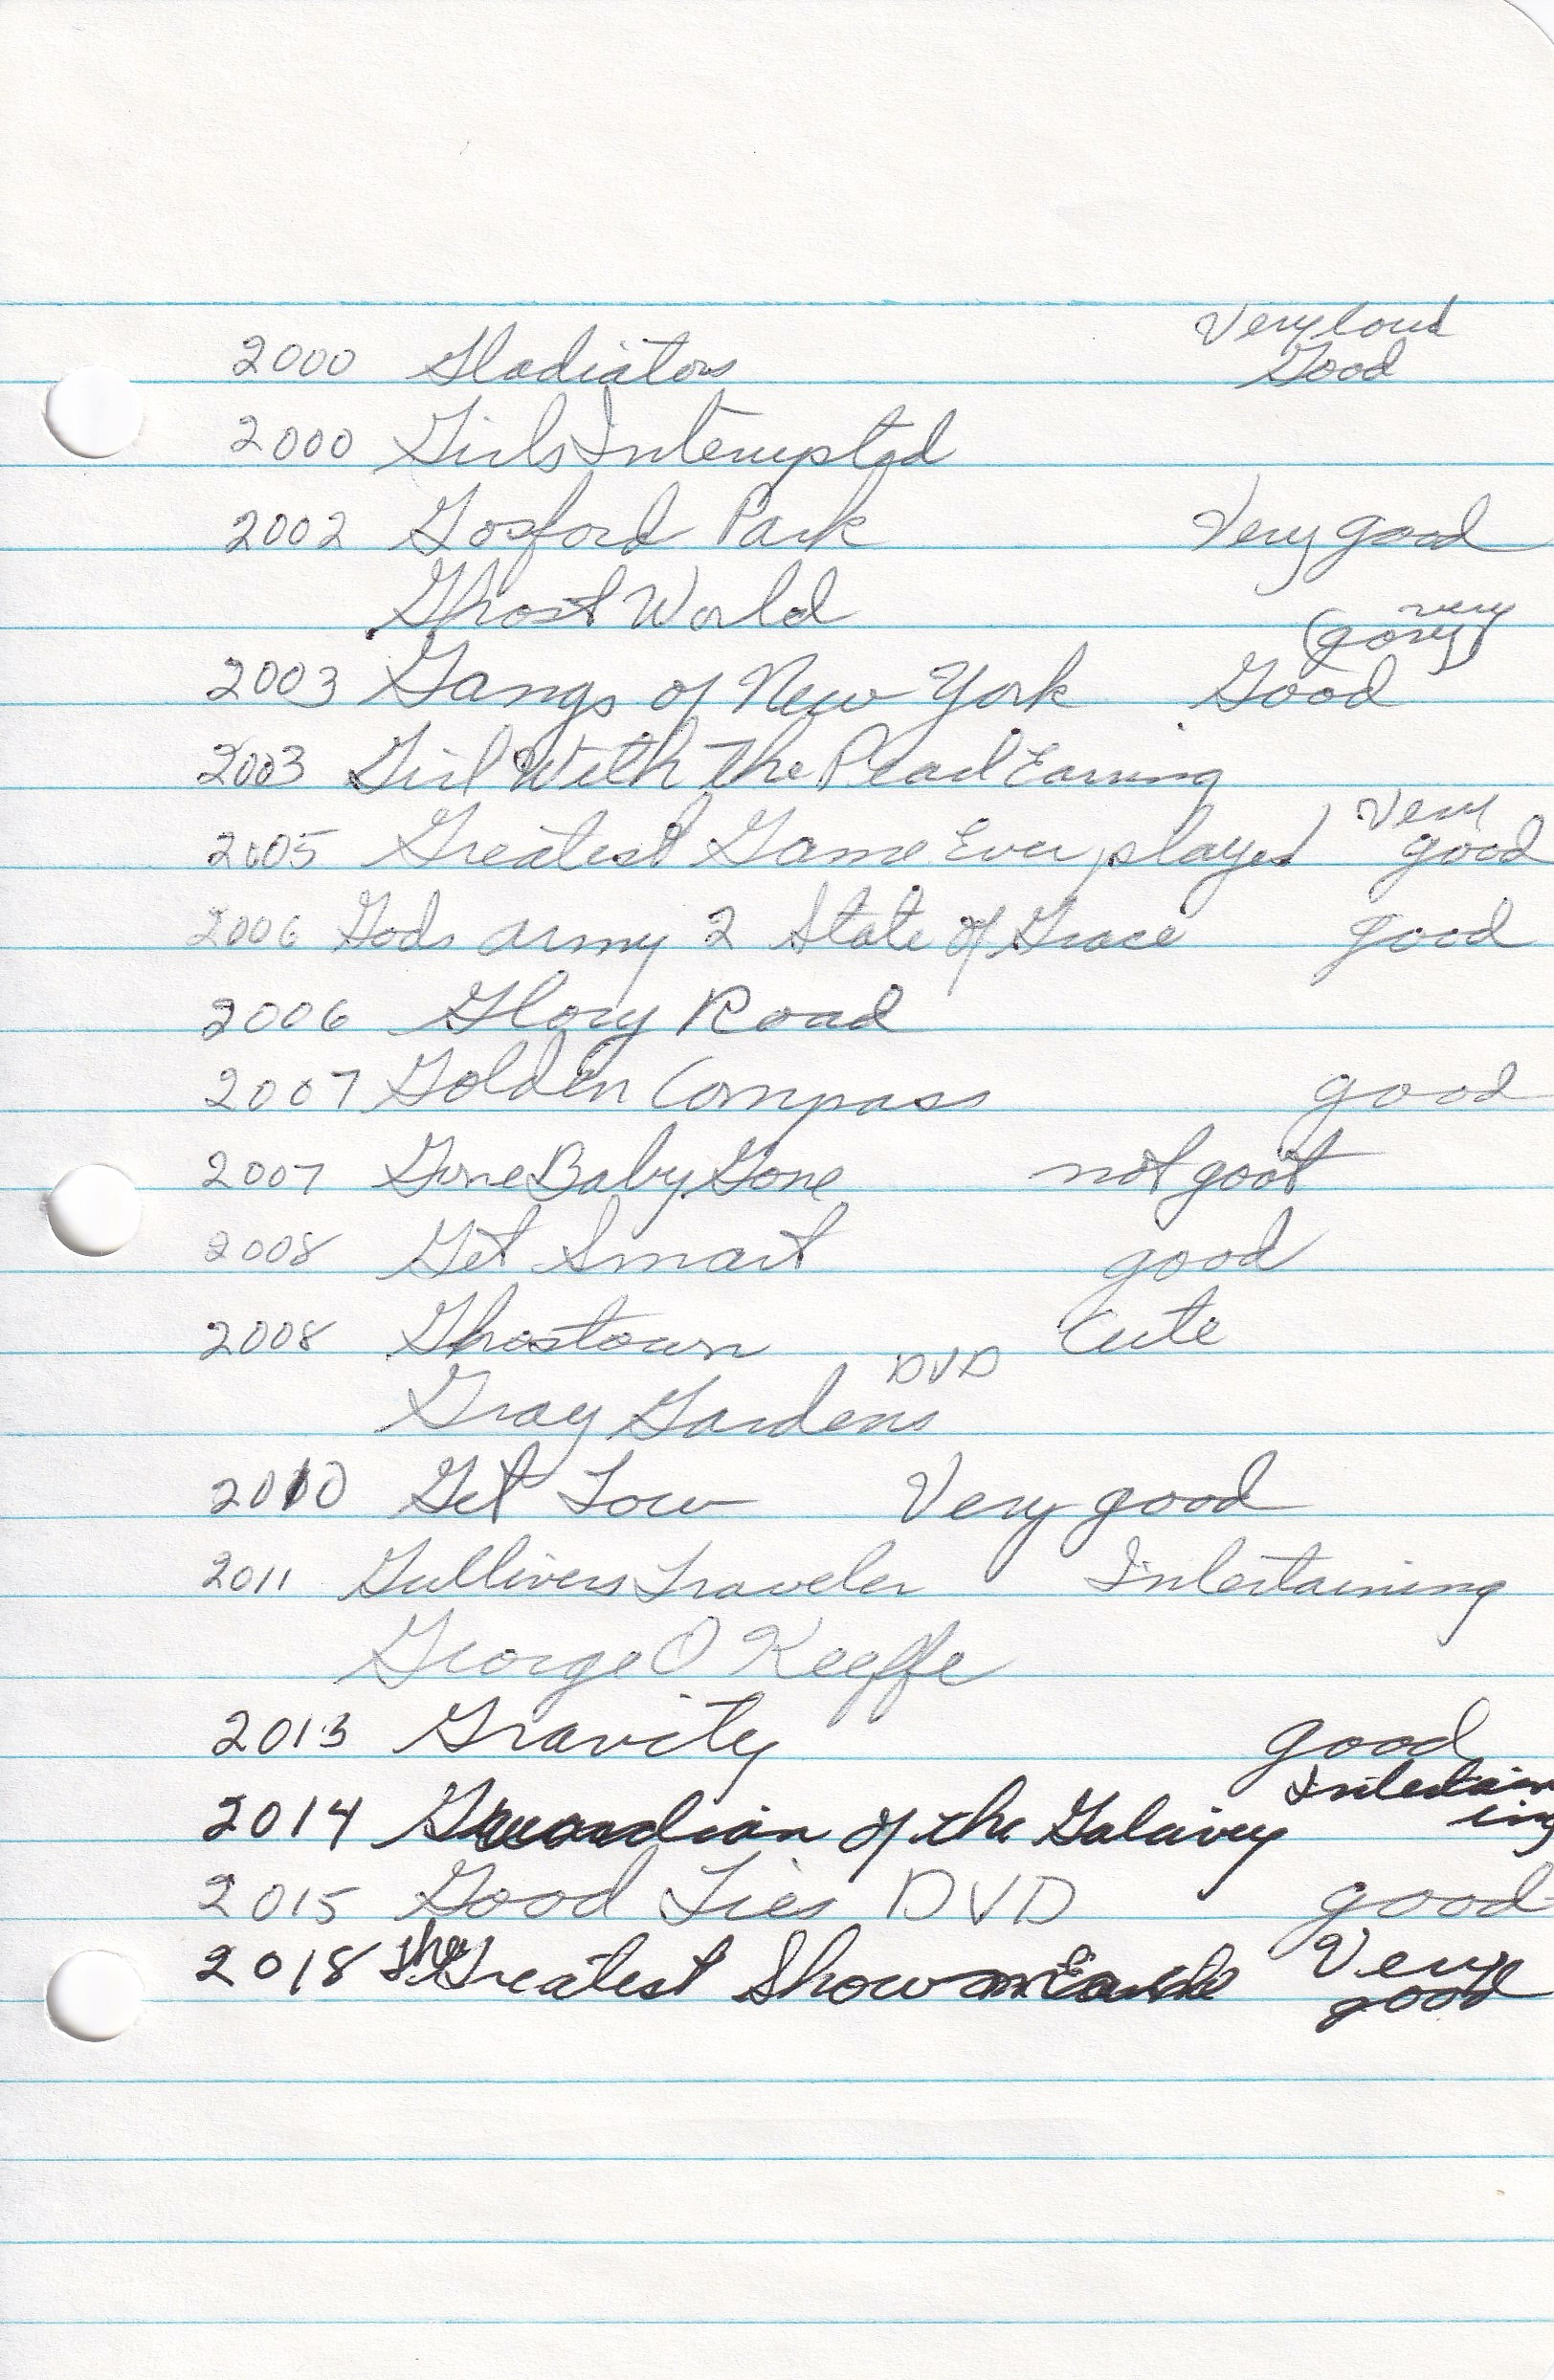 2000 Gladiators Very loud Good
2000 Girls Interrupted
2002 Gosford Park Very good
Ghost World
2003 Gangs of New York Good (very gory)
2003 Girl With The Pearl Earring
2005 Greatest Game Ever played Very good
2006 Gods army 2 State of Grace good
2006 Glory Road
2007 Golden Compass good
2007 Gone Baby Gone not goot
2008 Get Smart good
2008 Ghostown Cute
Gray Gardens DVD
2010 Get Low Very good
2011 Gullivers Traveler Intertaining
George O Keeffe
2013 Gravity good
2014 Guardian of the Galaxey Intertaining
2015 Good Lies DVD good
2018 The Greatest Show on Earth Very good